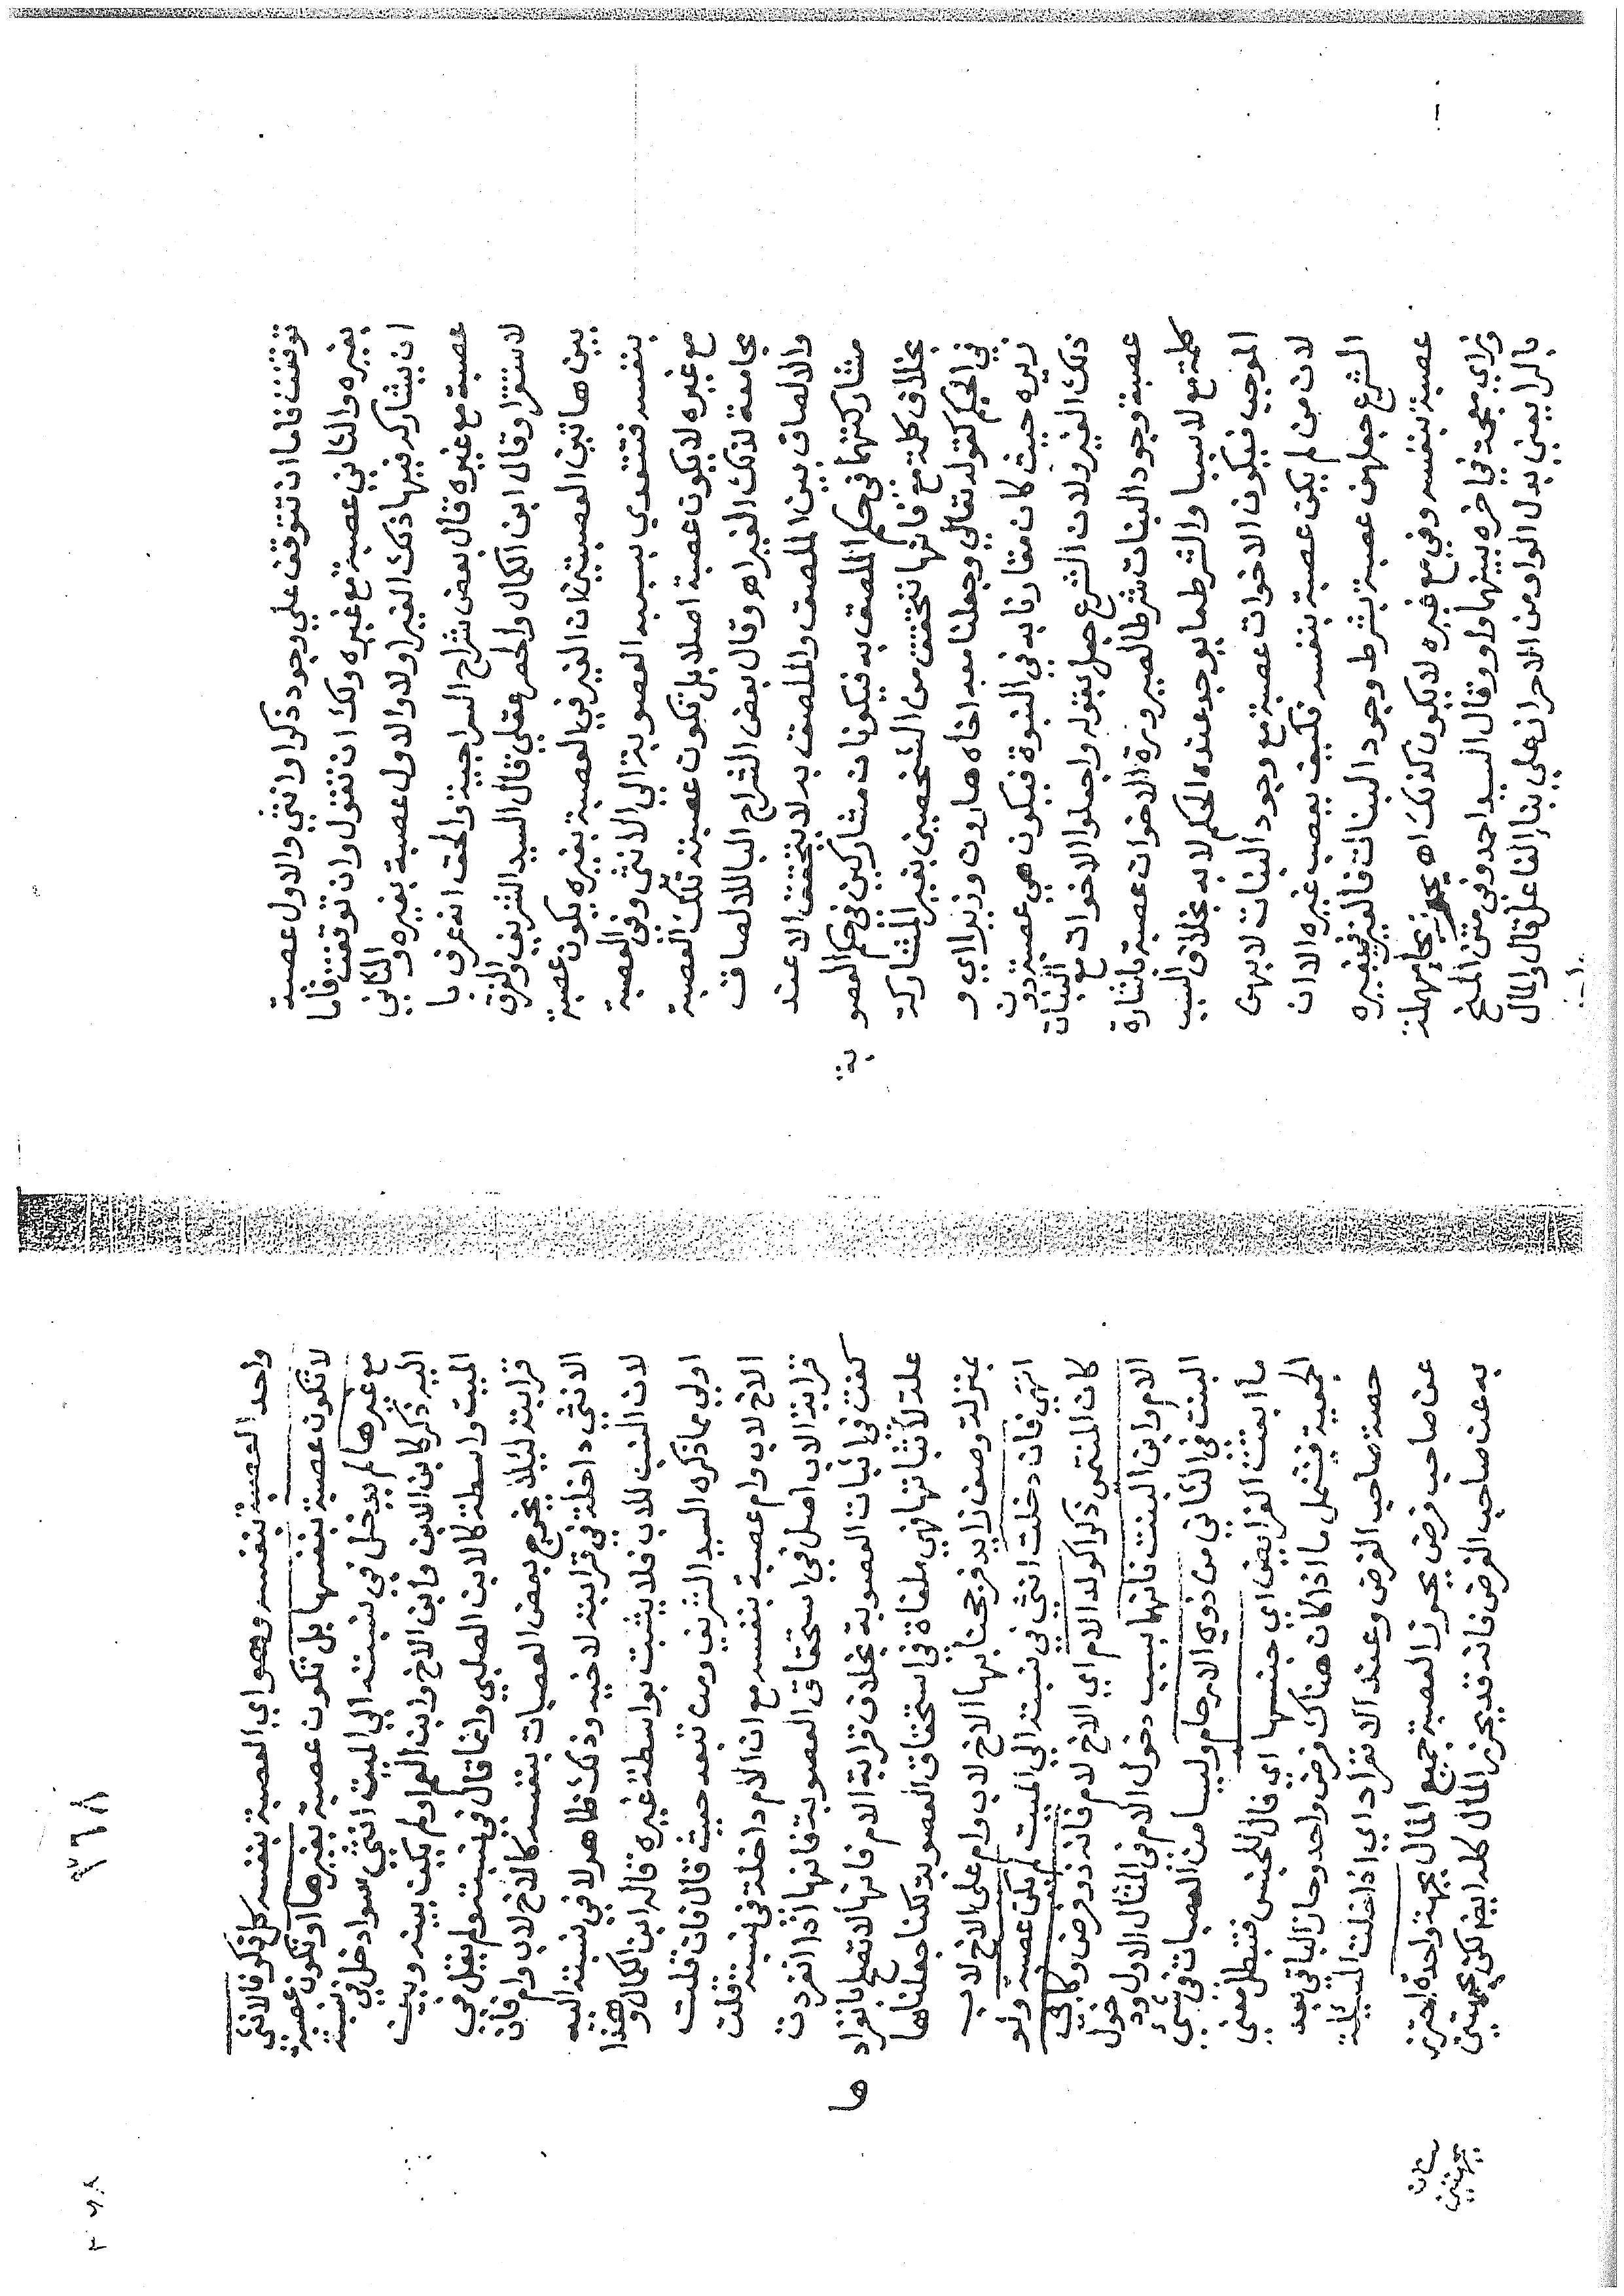 توقفت فاما ان تتوقف علي وجود ذكر او انثي والاول عصبة
بغيره والثاني عصبة مع غيره ولك ان تقول وان توقفت فاما
ان يشاركه فيها ذلك الغير او لا والاول عصبة بغيره والثاني
عصبة مع غيره قال بعض شراح السراجية والحق انه عرف با
لاستقرا وقال ابن الكمال والحصر عقلي قال السيد الشريف والفرق
بين هاتين العصبتين ان الغير في العصبة بغيره يكون عصبة
بنفسه فتتعدي بسببه العصوبة الي الانثى وفي العصبة
مع غيره لا يكون عصبة اصلا بل تكون عصوبة تلك العصبة
مجامعة لذلك الغير اهو وقال بعض الشراح البا للالصاق
والالصاق بين الملصق والملصق به لا يتحقق الا عند
مشاركتهما في حكم الملصق به فيكونان مشاركين في حكم العصو بة
بخلاف كلمة مع فانها تتحقق من الشخصين بغير المشاركة
في الحكم كقوله تعالي وجعلنا معه اخاه هارون وزيرا اي و
زيره حيث كان مقارنا به في النبوة فيكون هي عصبة دون
ذلك الغير ولان الشرع جعل بقوله واجعلوا الاخوات مع البنات
عصبة وجود البنات شرط الصيرورة الاخوات عصبة باشارة
كلمة مع لا سببا والشرط ما يوجد عنده الحكم لا به بخلاف السبب
الموجب فيكون الاخوات عصبة مع وجود البنات لا بهن
لان من لم يكن عصبة بنفسه فكيف يعصب غيره الا ان
الشرع جعلهن عصبة بشرط وجود البنات فالغير في بغيره
عصبة بنفسه وفي مع غيره لا يكون كذلك اه يحوز بحا مهملة
وزاي معجمة في اخره بينهما واو وقال السيد احمد وفي متن المنح
بالرا يعني بدل الواو من الاحراز علي بنا الفاعل قال والمال
واحد العصبة بنفسه وهو اي العصبة بنفسه كل ذكر فالانثي
لا تكون عصبة بنفسها بل تكون عصبة بغيرها او تكون عصبة
مع غيرها لم يدخل في نسبته الي الميت انثي سوا دخل في نسبة
اليه ذكر كابن الابن وابن الاخ وابن العم او لم يكن بينه وبين
الميت واسطة كالابن الصلبي وانما قال في نسبته ولم يقل في
قرابته ليلا يخرج بعض العصبات بنفسه كالاخ لاب وام فان
الانثي داخلة في قرابته لاخيه وذلك ظاهر لا في نسبته اليه
لان النسب للاب فلا يثبت بواسطة غيره قاله ابن الكمال وهذا
اولي مما ذكره السيد الشريف ومن تبعه حيث قال فان قلت
الاخ لاب وام عصبة بنفسه مع ان الام داخلة في نسبته قلت
قرابة الاب اصل في استحقاق العصوبة فانها اذا انفردت
كفت في اثبات العصوبة بخلاف قرابة الام فانها لا تصلح بانفراد ها
علة لاثباتها فهي ملغاة في استحقاق العصوبة لكنا جعلناها
بمنزلة وصف زايد فرجحنا بها الاخ لاب وام على الاخ لاب
انتهي فان دخلت انثي في نسبته الي الميت لم يكن عصبة ولو
كان المنتمى ذكرا كولد الام اي الاخ لام فانه ذو فرض وكابي
الام وابن البنت فانهما بسبب دخول الام في المثال الاول ودخول
البنت في الثاني من ذوي الارحام وليسا من العصبات في شئ
ما ابقت الفرايض اي جنسها اي فال للجنس فتبطل معني
الجمعية فيشمل ما اذا كان هناك فرض واحد وحاز الباقي بعد
حصة صاحب الفرض وعند الانفراد اي اذا خلت المسيلة
عن صاحب فرض يحوز العصبة جميع المال بجهة واحدة احترز
به عن صاحب الفرض فانه قد يحرز المال كله ايضا لكن بجهتين